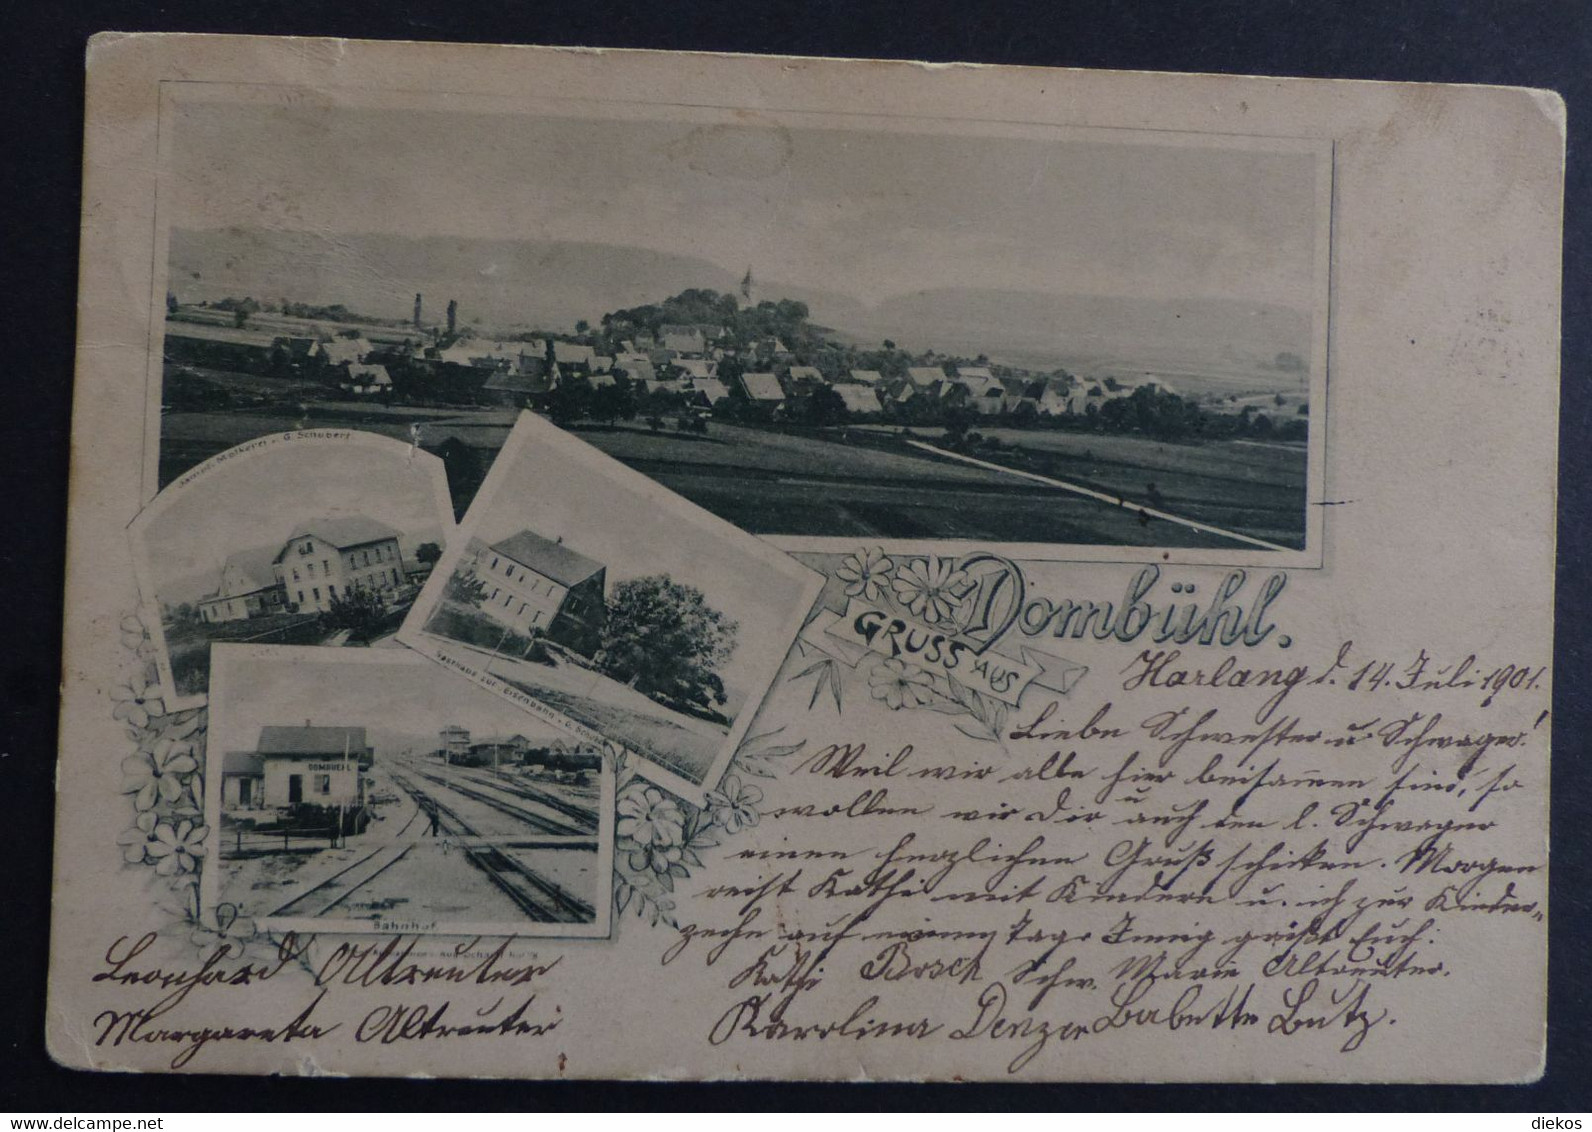 Molkerei v. G. Schubert.
Gasthaus zur Eisenbahn v. G.
DOMBUEHL
Bahnhof
GRUSS AUS
Dombühl.
Harlang d. 14. Juli 1901.
Liebe Schwester u. Schwager!
Weil wir alle hier beisammen sind, so
wollen wir Dir u auch den l. Schwager
einen herzlichen Gruß schicken. Morgen
reist Kathi mit Kindern u. ich zur Kinder-
zeche auf einen Tag. Innig grüßt Euch:
Kathi Bosch Schw. Marie Altreuter.
Karolina Denzer Babette Lutz.
Leonhard Altreuter
Margareta Altreuter
diekos